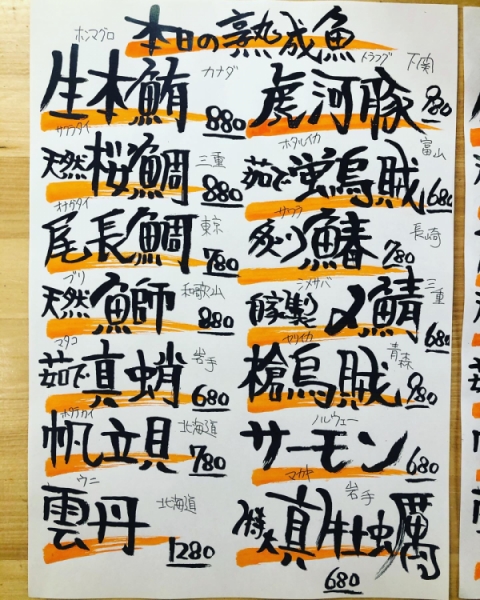 本日の熟成魚
ホンマグロ
生本鮪 カナダ 880
サクラダイ
天然桜鯛 三重 880
オナガダイ
尾長鯛 東京 780
ブリ
天然鰤 和歌山 880
マダコ
茹で真蛸 岩手 680
ホタテガイ
帆立貝 北海道 780
ウニ
雲丹 北海道 1280
トラフグ
虎河豚 下関 980
ホタルイカ
茹で蛍烏賊 富山 680
サワラ
炙り鰆 長崎 780
シメサバ
自家製〆鯖 三重 680
ヤリイカ
槍烏賊 青森 980
サーモン ノルウェー 680
マガキ
特大真牡蠣 岩手 680